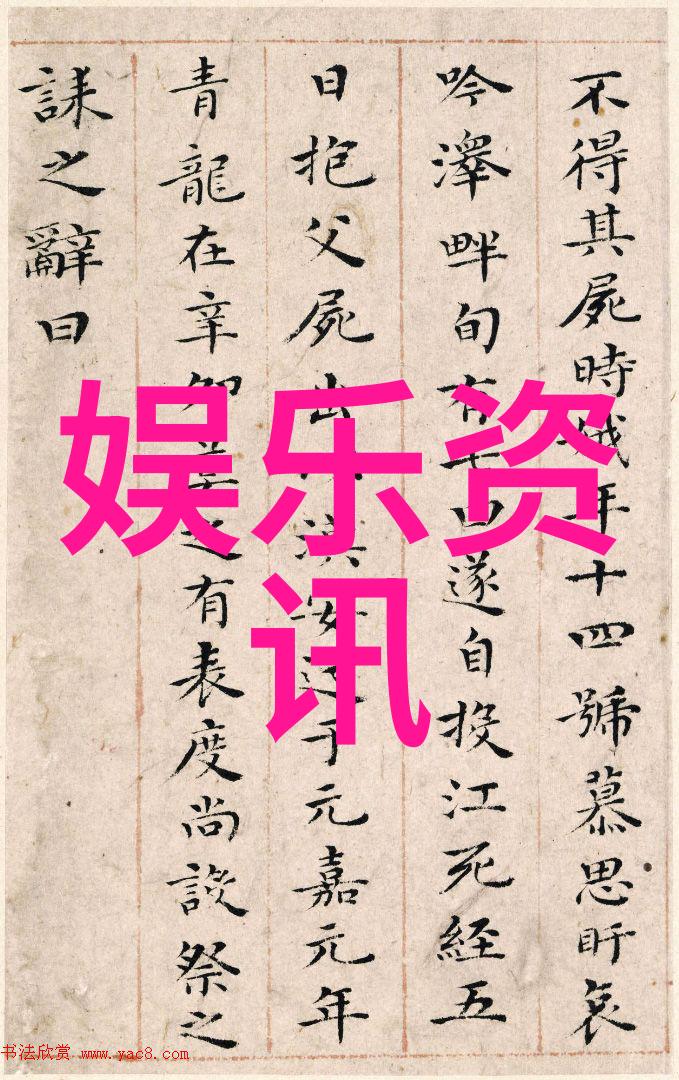 不得其屍時娥年十四號慕思盱哀
吟澤畔旬有七日遂自投江死經五
日抱父屍出以漢安迄于元嘉元年
青龍在辛卯莫之有表度尚設祭之
誄之辭曰
娱乐资
讯
书法欣赏 www.yac8.com